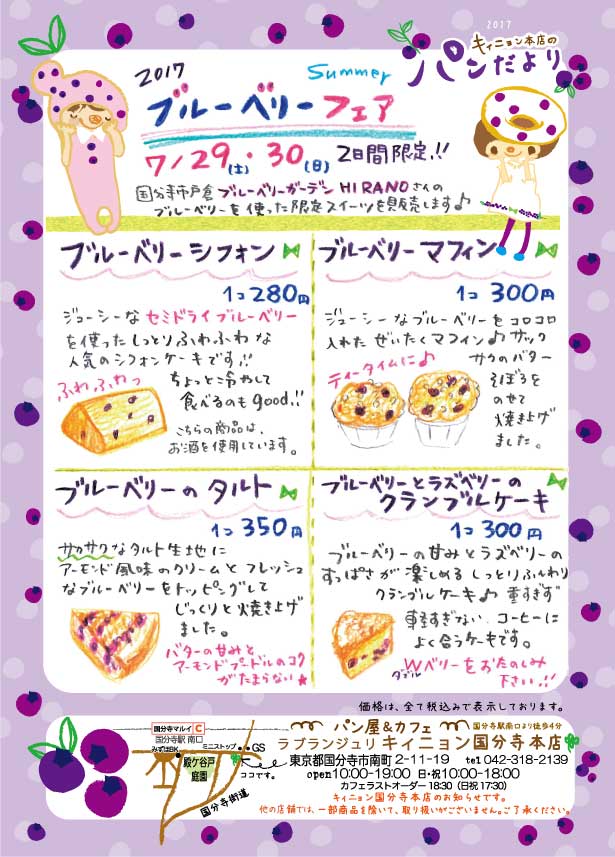 2017
キィニョン本店の
パンだより
2017 Summer
ブルーベリーフェア
7/29(土)・30(日) 2日間限定!!
国分寺市戸倉 ブルーベリーガーデンHIRANOさんの
ブルーベリーを使った限定スイーツを販売します♪
ブルーベリーシフォン
1コ280円
ジューシーなセミドライブルーベリー
を使ったしっとりふわふわな
人気のシフォンケーキです!!
ふわふわっ
ちょっと冷やして
食べるのもgood!!
こちらの商品は、
お酒を使用しています。
ブルーベリーマフィン
1コ300円
ジューシーなブルーベリーをコロコロ
入れたぜいたくマフィン♪サック
ティータイムに♪
サクのバター
そぼろを
のせて
焼き上げ
ました。
ブルーベリーのタルト
1コ350円
サクサクなタルト生地に
アーモンド風味のクリームとフレッシュ
なブルーベリーをトッピングして
じっくりと焼き上げ
ました。
バターの甘みと
アーモンドプードルのコク
がたまらない★
ブルーベリーとラズベリーの
クランブルケーキ
1コ300円
ブルーベリーの甘みとラズベリーの
すっぱさが楽しめるしっとりふんわり
クランブルケーキ♪重すぎず
軽すぎない、コーヒーに
よく合うケーキです。
Wベリーをおたのしみ
ダブル
下さい!!
価格は、全て税込みで表示しております。
国分寺マルイ C
国分寺駅 南口
みずほBK
ミニストップ
GS
殿ケ谷戸
庭園
ココです。
国分寺街道
パン屋&カフェ
国分寺駅南口より徒歩4分
ラブランジュリ キィニョン国分寺本店
東京都国分寺市南町 2-11-19 tel 042-318-2139
open10:00-19:00 日・祝10:00-18:00
カフェラストオーダー 18:30 (日祝 17:30)
キィニョン国分寺本店のお知らせです。
他の店舗では、一部商品を除いて、取り扱いがございません。ご了承ください。